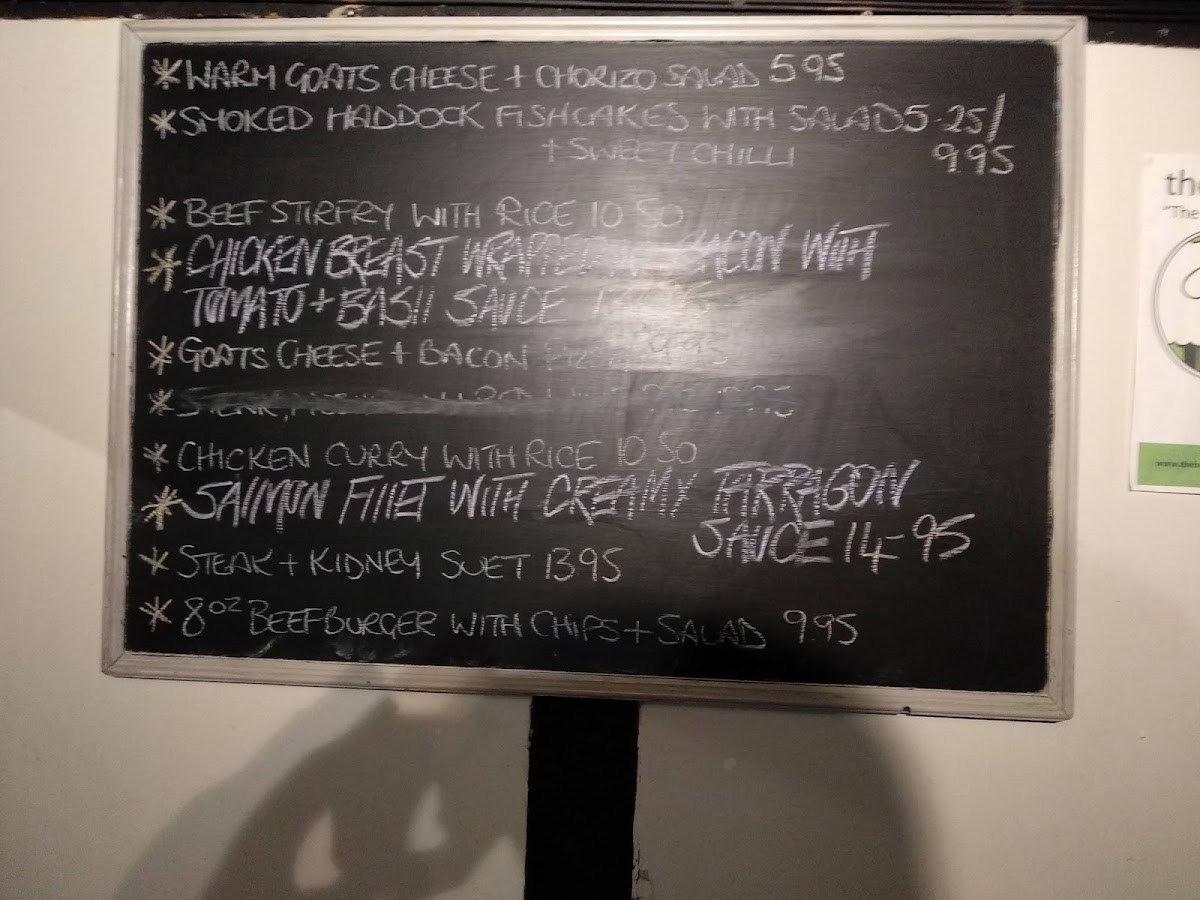 * WARM GOATS CHEESE + CHORIZO SALAD 595
* SMOKED HADDOCK FISHCAKES WITH SALAD 5-25/
+ SWEET CHILLI 995
* BEEF STIRFRY WITH RICE 10 50
* CHICKEN BREAST WRAPPED BACON WITH
TOMATO + BASIL SAUCE
* GOATS CHEESE + BACON
*
* CHICKEN CURRY WITH RICE 10 50
* SALMON FILLET WITH CREAMY TARRAGON
SAUCE 14-95
* STEAK + KIDNEY SUET 1395
* 8oz BEEFBURGER WITH CHIPS + SALAD 9.95
the
"The